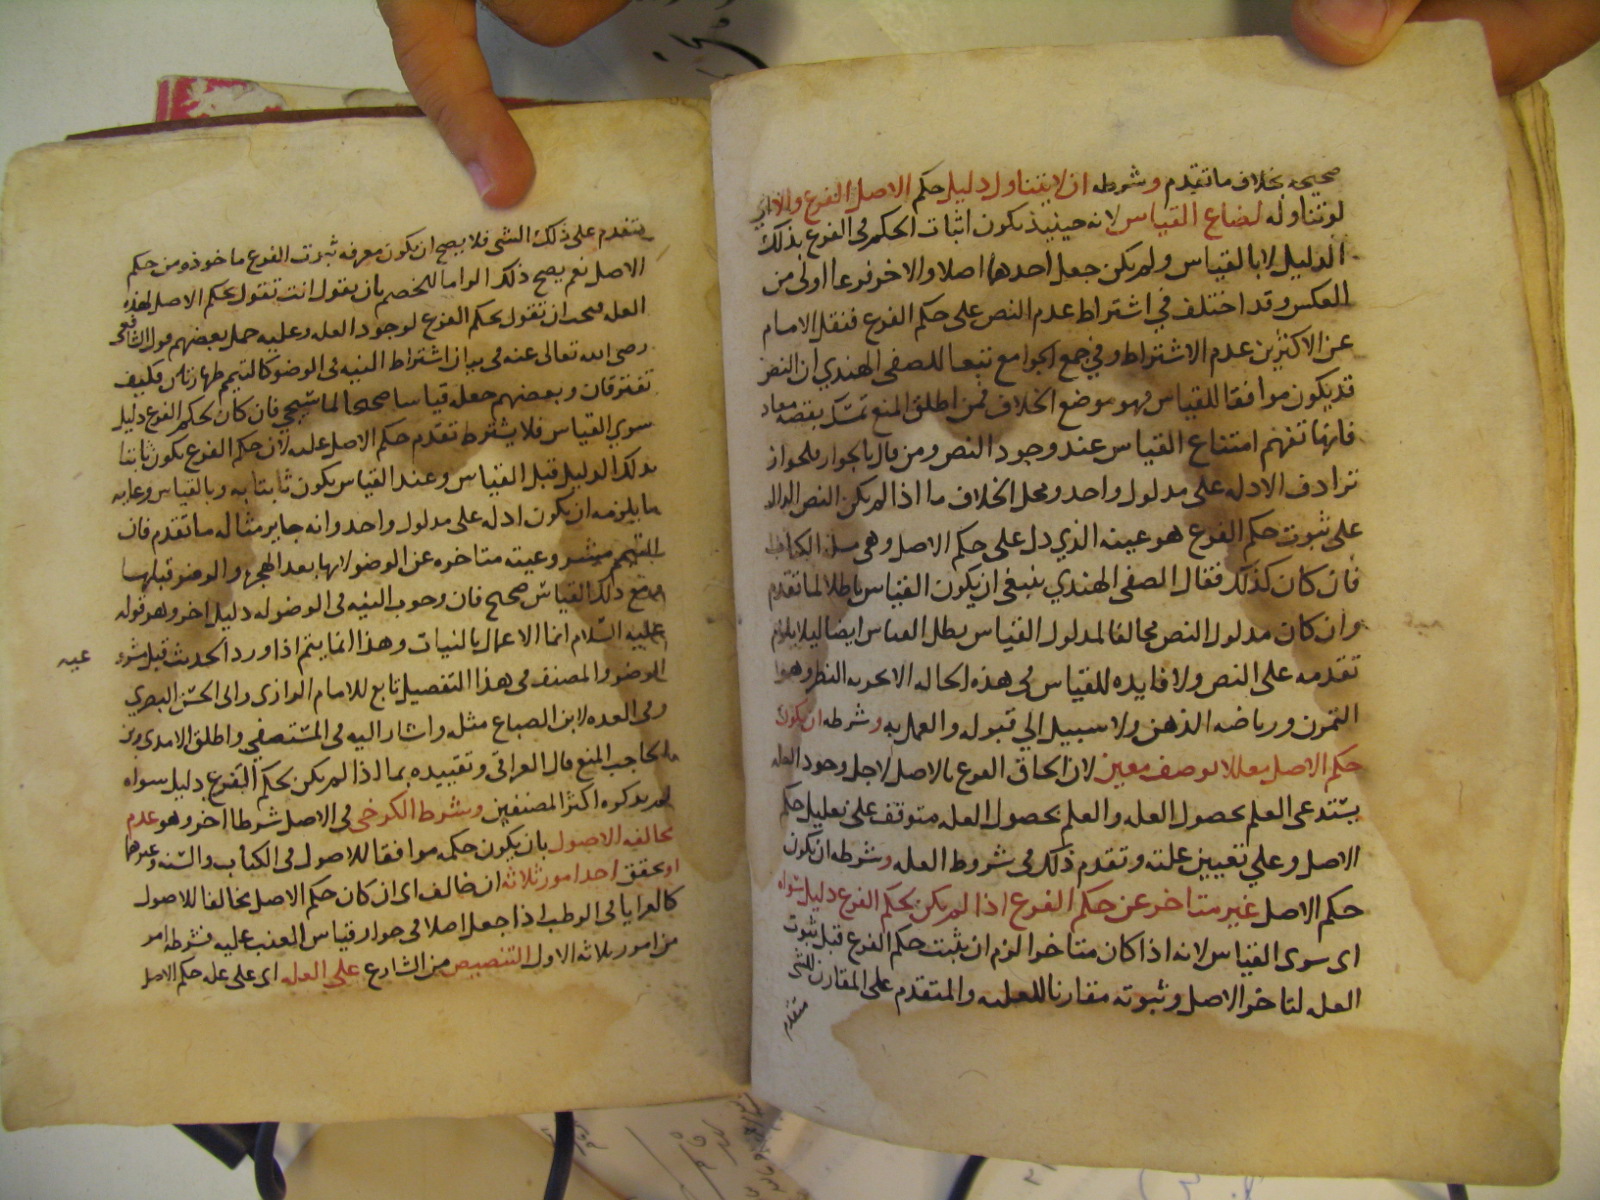 صحيحه بخلاف ما تقدم وشرطه ان لا يتناول دليل حكم الاصل الفرع والا اي
لو تناوله لضاع القياس لانه حينيذ يكون اثبات الحكم في الفرع بذلك
الدليل لا بالقياس ولم يكن جعل احدهما اصلا والاخر فرعا اولى من
العكس وقد اختلف في اشتراط عدم النص على حكم الفرع فنقل الامام
عن الاكثرين عدم الاشتراط وفي جمع الجوامع تبعا للصفي الهندي ان النص
قد يكون موافقا للقياس فهو موضع الخلاف فمن اطلق المنع تمسك بقصه معاد
فانها تفهم امتناع القياس عند وجود النص ومن قال بالجواز فلجواز
ترادف الادله على مدلول واحد ومحل الخلاف ما اذا لم يكن النص الدال
على ثبوت حكم الفرع هو عينه الذي دل على حكم الاصل وهي مسله الكتاب
فان كان كذلك فقال الصفي الهندي ينبغي ان يكون القياس باطلا لما تقدم
وان كان مدلول النص مخالفا لمدلول القياس بطل القياس ايضا ليلا يلزم
تقدمه على النص ولا فايده للقياس في هذه الحاله الا تجربه النظر وهوا
التمرن ورياضه الذهن ولا سبيل الي قبوله والعمل به وشرطه ان يكون
حكم الاصل معللا بوصف معين لان الحاق الفرع بالاصل لاجل وجود العله
يستدعى العلم بحصول العله والعلم بحصول العله متوقف على تعليل حكم
الاصل وعلي تعيين علته وتقدم ذلك في شروط العله وشرطه ان يكون
حكم الاصل غير متاخر عن حكم الفرع اذا لم يكن لحكم الفرع دليل سواه
اى سوى القياس لانه اذا كان متاخرا لزم ان يثبت حكم الفرع قبل ثبوت
العله لتاخر الاصل وثبوته مقارنا للعليه والمتقدم على المقارن للشي
متقدم
يتقدم على ذلك الشى فلا يصح ان يكون معرفه ثبوت الفرع ماخوذه من حكم
الاصل نعم يصح ذلك الزاما للخصم بان يقول انت تقول بحكم الاصل لهذه
العله فيجب ان تقول بحكم الفرع لوجود العله وعليه حمل بعضهم قول الشافعى
رضى الله تعالى عنه في بيان اشتراط النيه في الوضو كالتيمم طهارتان فكيف
تفترقان وبعضهم جعله قياسا صحيحا لما سيجي فان كان لحكم الفرع دليل
سوي القياس فلا يشترط تقدم حكم الاصل عليه لان حكم الفرع يكون ثابتا
بذلك الدليل قبل القياس وعند القياس يكون ثابتا به وبالقياس وغايه
ما يلزمه ان يكون ادله على مدلول واحد وانه جايز مثاله ما تقدم فان
التيمم مشروعيته متاخره عن الوضو لانها بعد الهجره والوضو قبلها
ومع ذلك القياس صحيح فان وجوب النيه في الوضو له دليل اخر وهو قوله
عليه السلام انما الاعمال بالنيات وهذا انما يتم اذا ورد الحديث قبل
الوضو والمصنف في هذا التفصيل تابع للامام الرازى والى الحسن البصري
وفى العده لابن الصباغ مثله واشار اليه في المستصفي واطلق الامدى وابن
الحاجب المنع قال العراقى وتقييده بما اذا لم يكن لحكم الفرع دليل سواه
لم يذكره اكثر المصنفين وشرط الكرخى في الاصل شرطا اخر وهو عدم
مخالفه الاصول بان يكون حكمه موافقا للاصول في الكتاب والسنه وغيرهما
او تحقق احد امور ثلاثه ان خالف اى ان كان حكم الاصل مخالفا للاصول
كالعرايا في الرطب اذا جعل اصلا في جواز قياس العنب عليه فشرطه امر
من امور ثلاثه الاول التنصيص من الشارع على العله اى على عله حكم الاصل